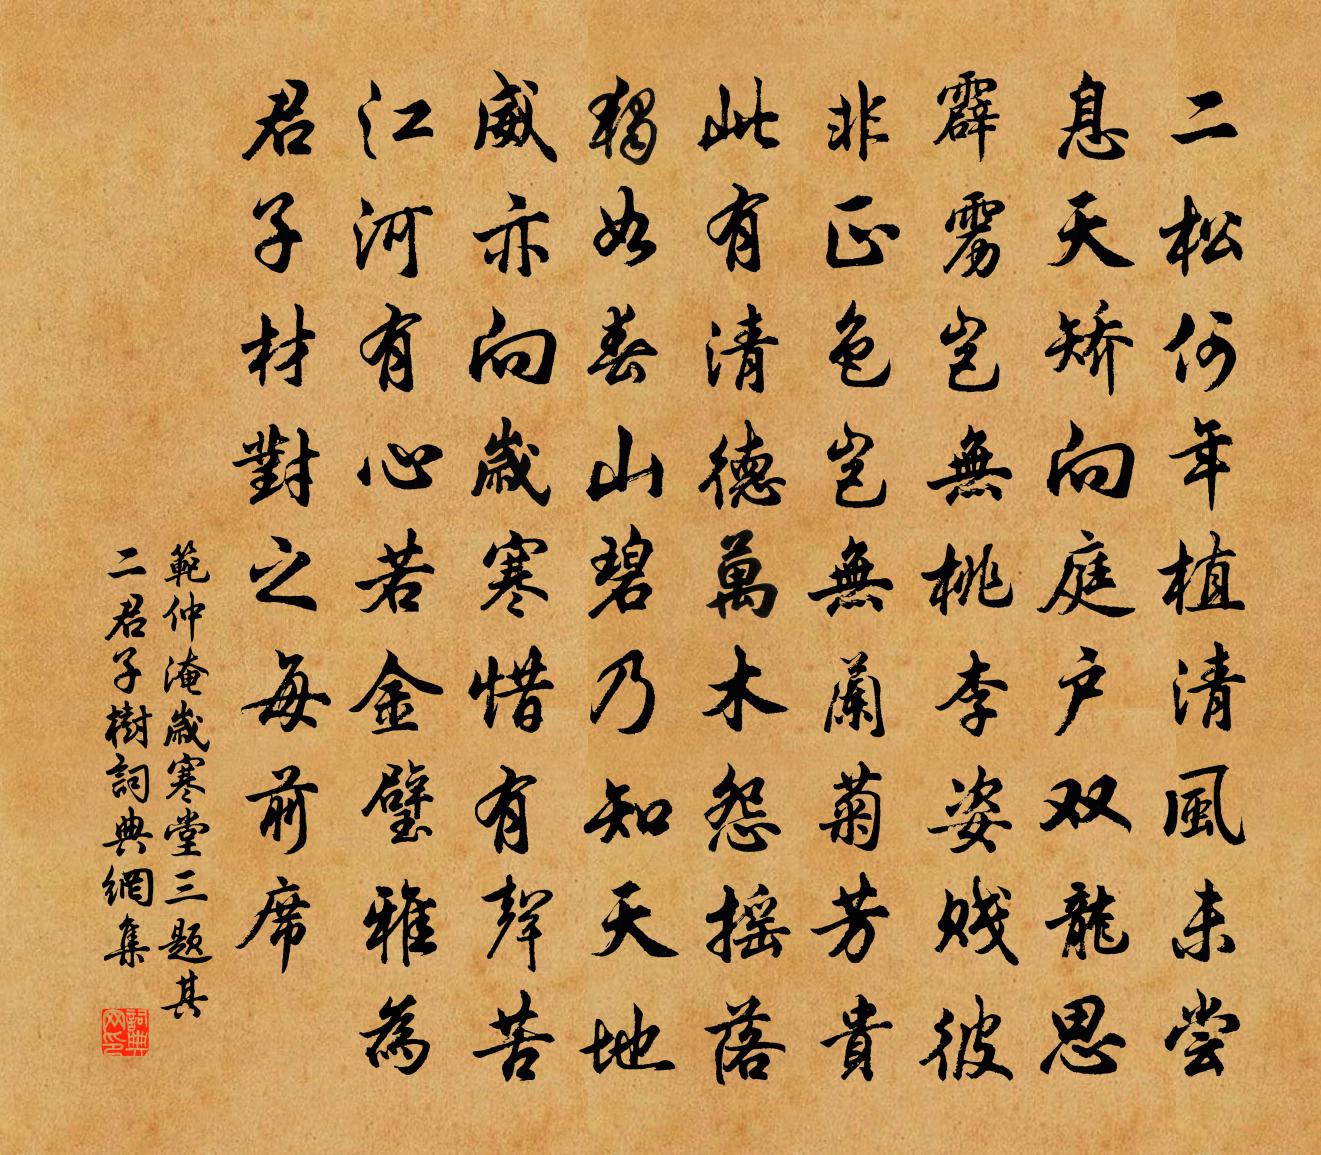 二松何年植清風未嘗
息夭矫向庭户双龍思
霹雳岂無桃李姿賤彼
非正色岂無蘭菊芳貴
此有清德萬木怨摇落
獨如春山碧乃知天地
威亦向歲寒惜有聲苦
江河有心若金璧雅為
君子材對之每前席
範仲淹歲寒堂三題其
二君子樹詞典網集
詞典網印